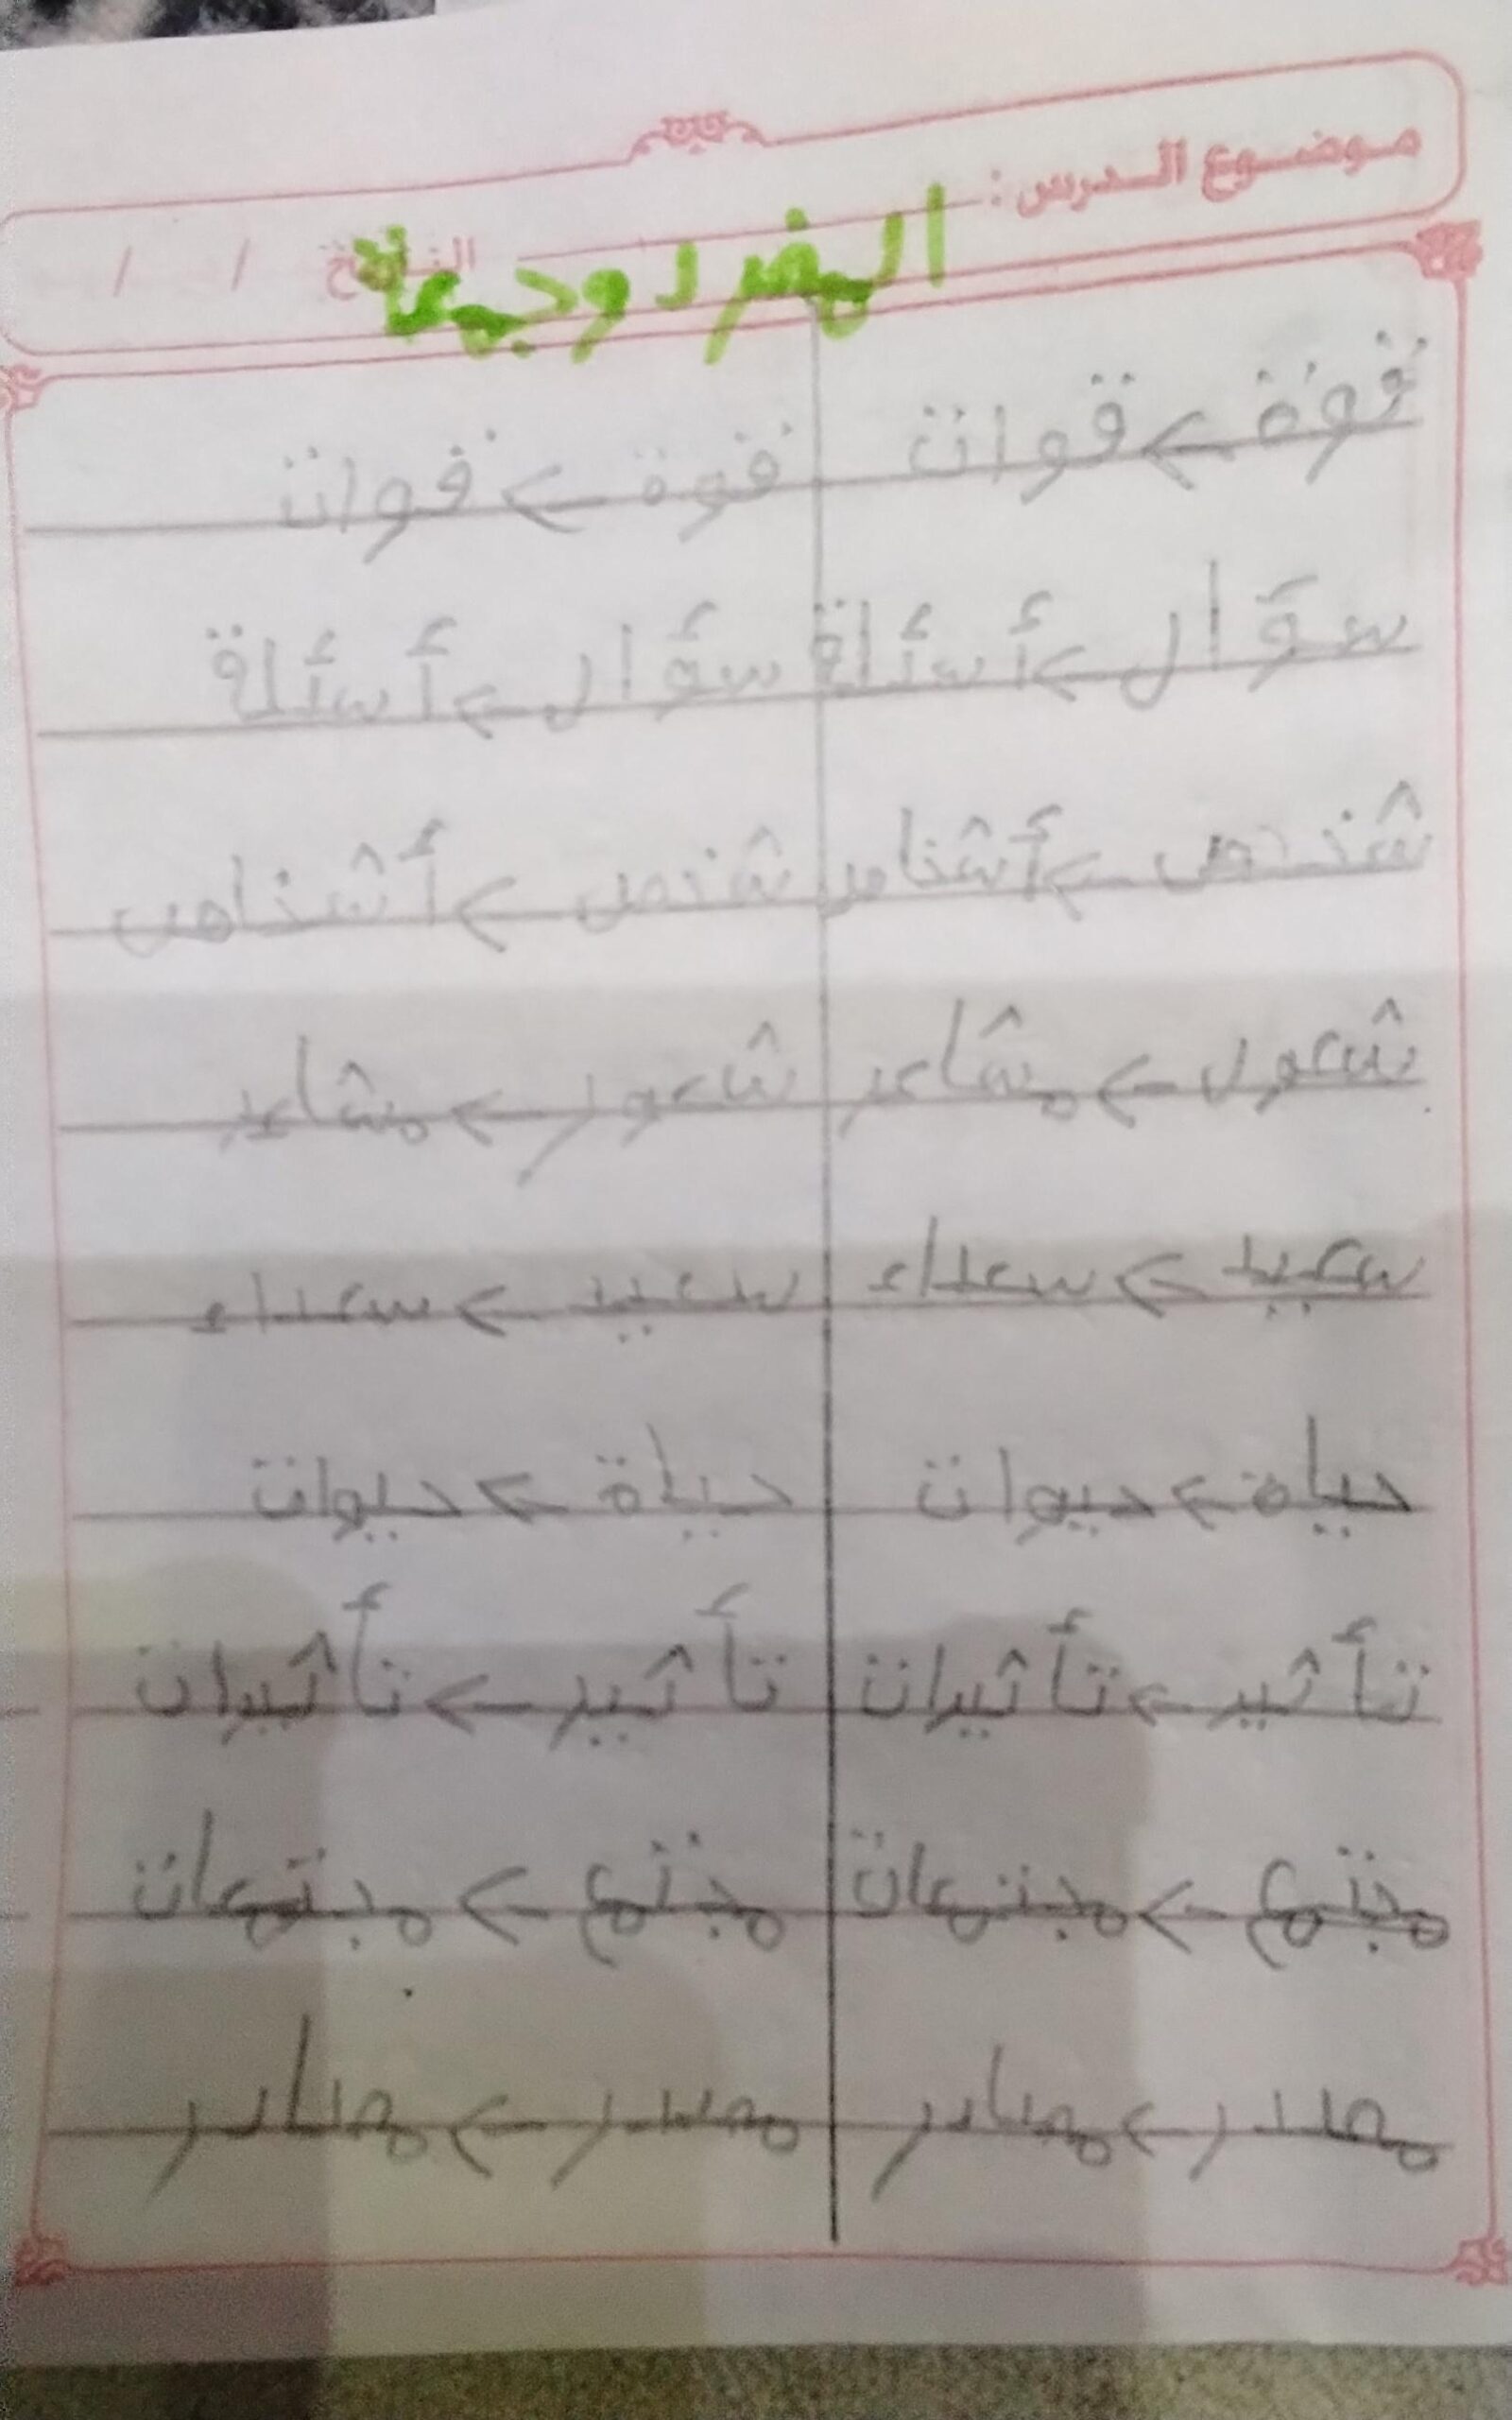 موضوع الدرس:
المفرد وجمعة
التاريخ / /
قوة > قوات قوة > قوات
سؤال > أسئلة سؤال > أسئلة
شخص > أشخاص شخص > أشخاص
شعور > مشاعر شعور > مشاعر
سعيد > سعداء سعيد > سعداء
حياة > حيوات حياة > حيوات
تأثير > تأثيرات تأثير > تأثيرات
مجتمع > مجتمعات مجتمع > مجتمعات
مصدر > مصادر مصدر > مصادر